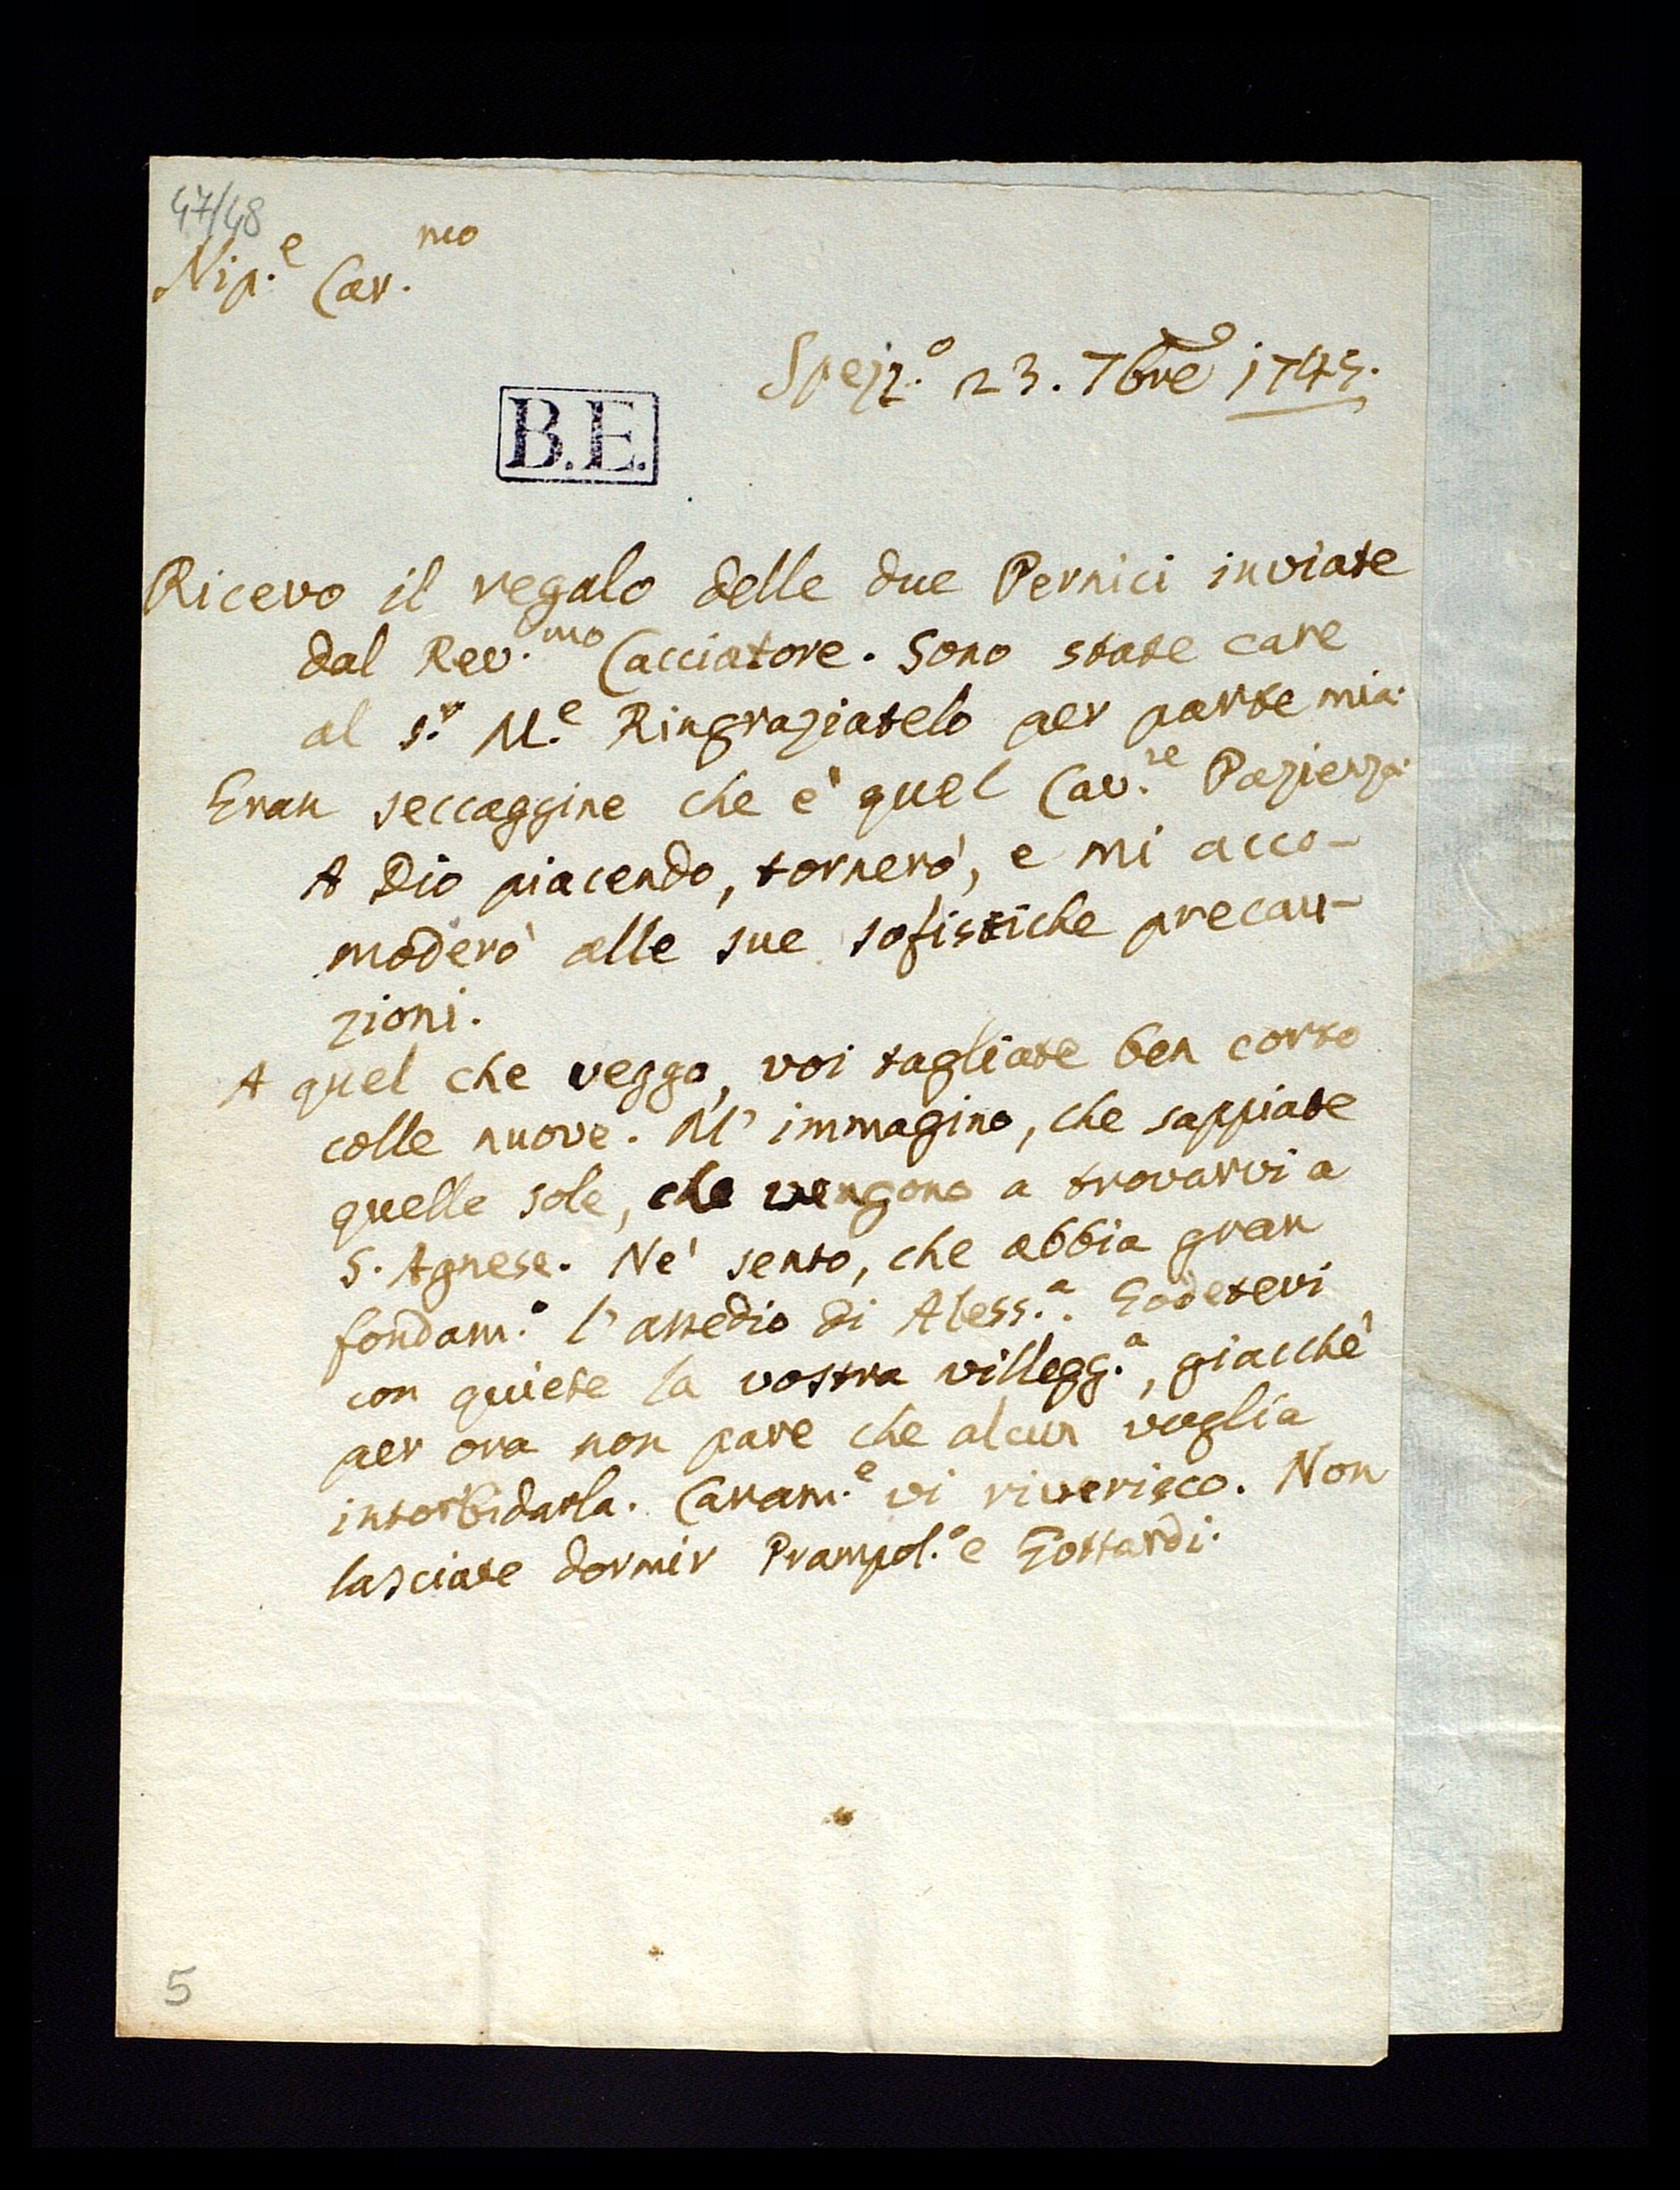 47/48
Nip.e Car.mo
Spezz.o 23. 7bre 1745.
B.E.
Ricevo il regalo delle due Pernici inviate
dal Rev.mo Cacciatore. Sono state care
al S.r M.e Ringraziatelo per parte mia.
Gran seccaggine che è quel Cav.re Pazienza.
A Dio piacendo, tornerò, e mi acco-
moderò alle sue sofistiche precau-
zioni.
A quel che veggo, voi tagliate ben corto
colle nuove. M' immagino, che sappiate
quelle sole, che vengono a trovarvi a
S. Agnese. Nè sento, che abbia gran
fondam.o l'assedio di Aless.a. Godetevi
con quiete la vostra villegg.a, giacchè
per ora non pare che alcun voglia
intorbidarla. Caram.e vi riverisco. Non
lasciate dormir Prampol.o e Gottardi.
5